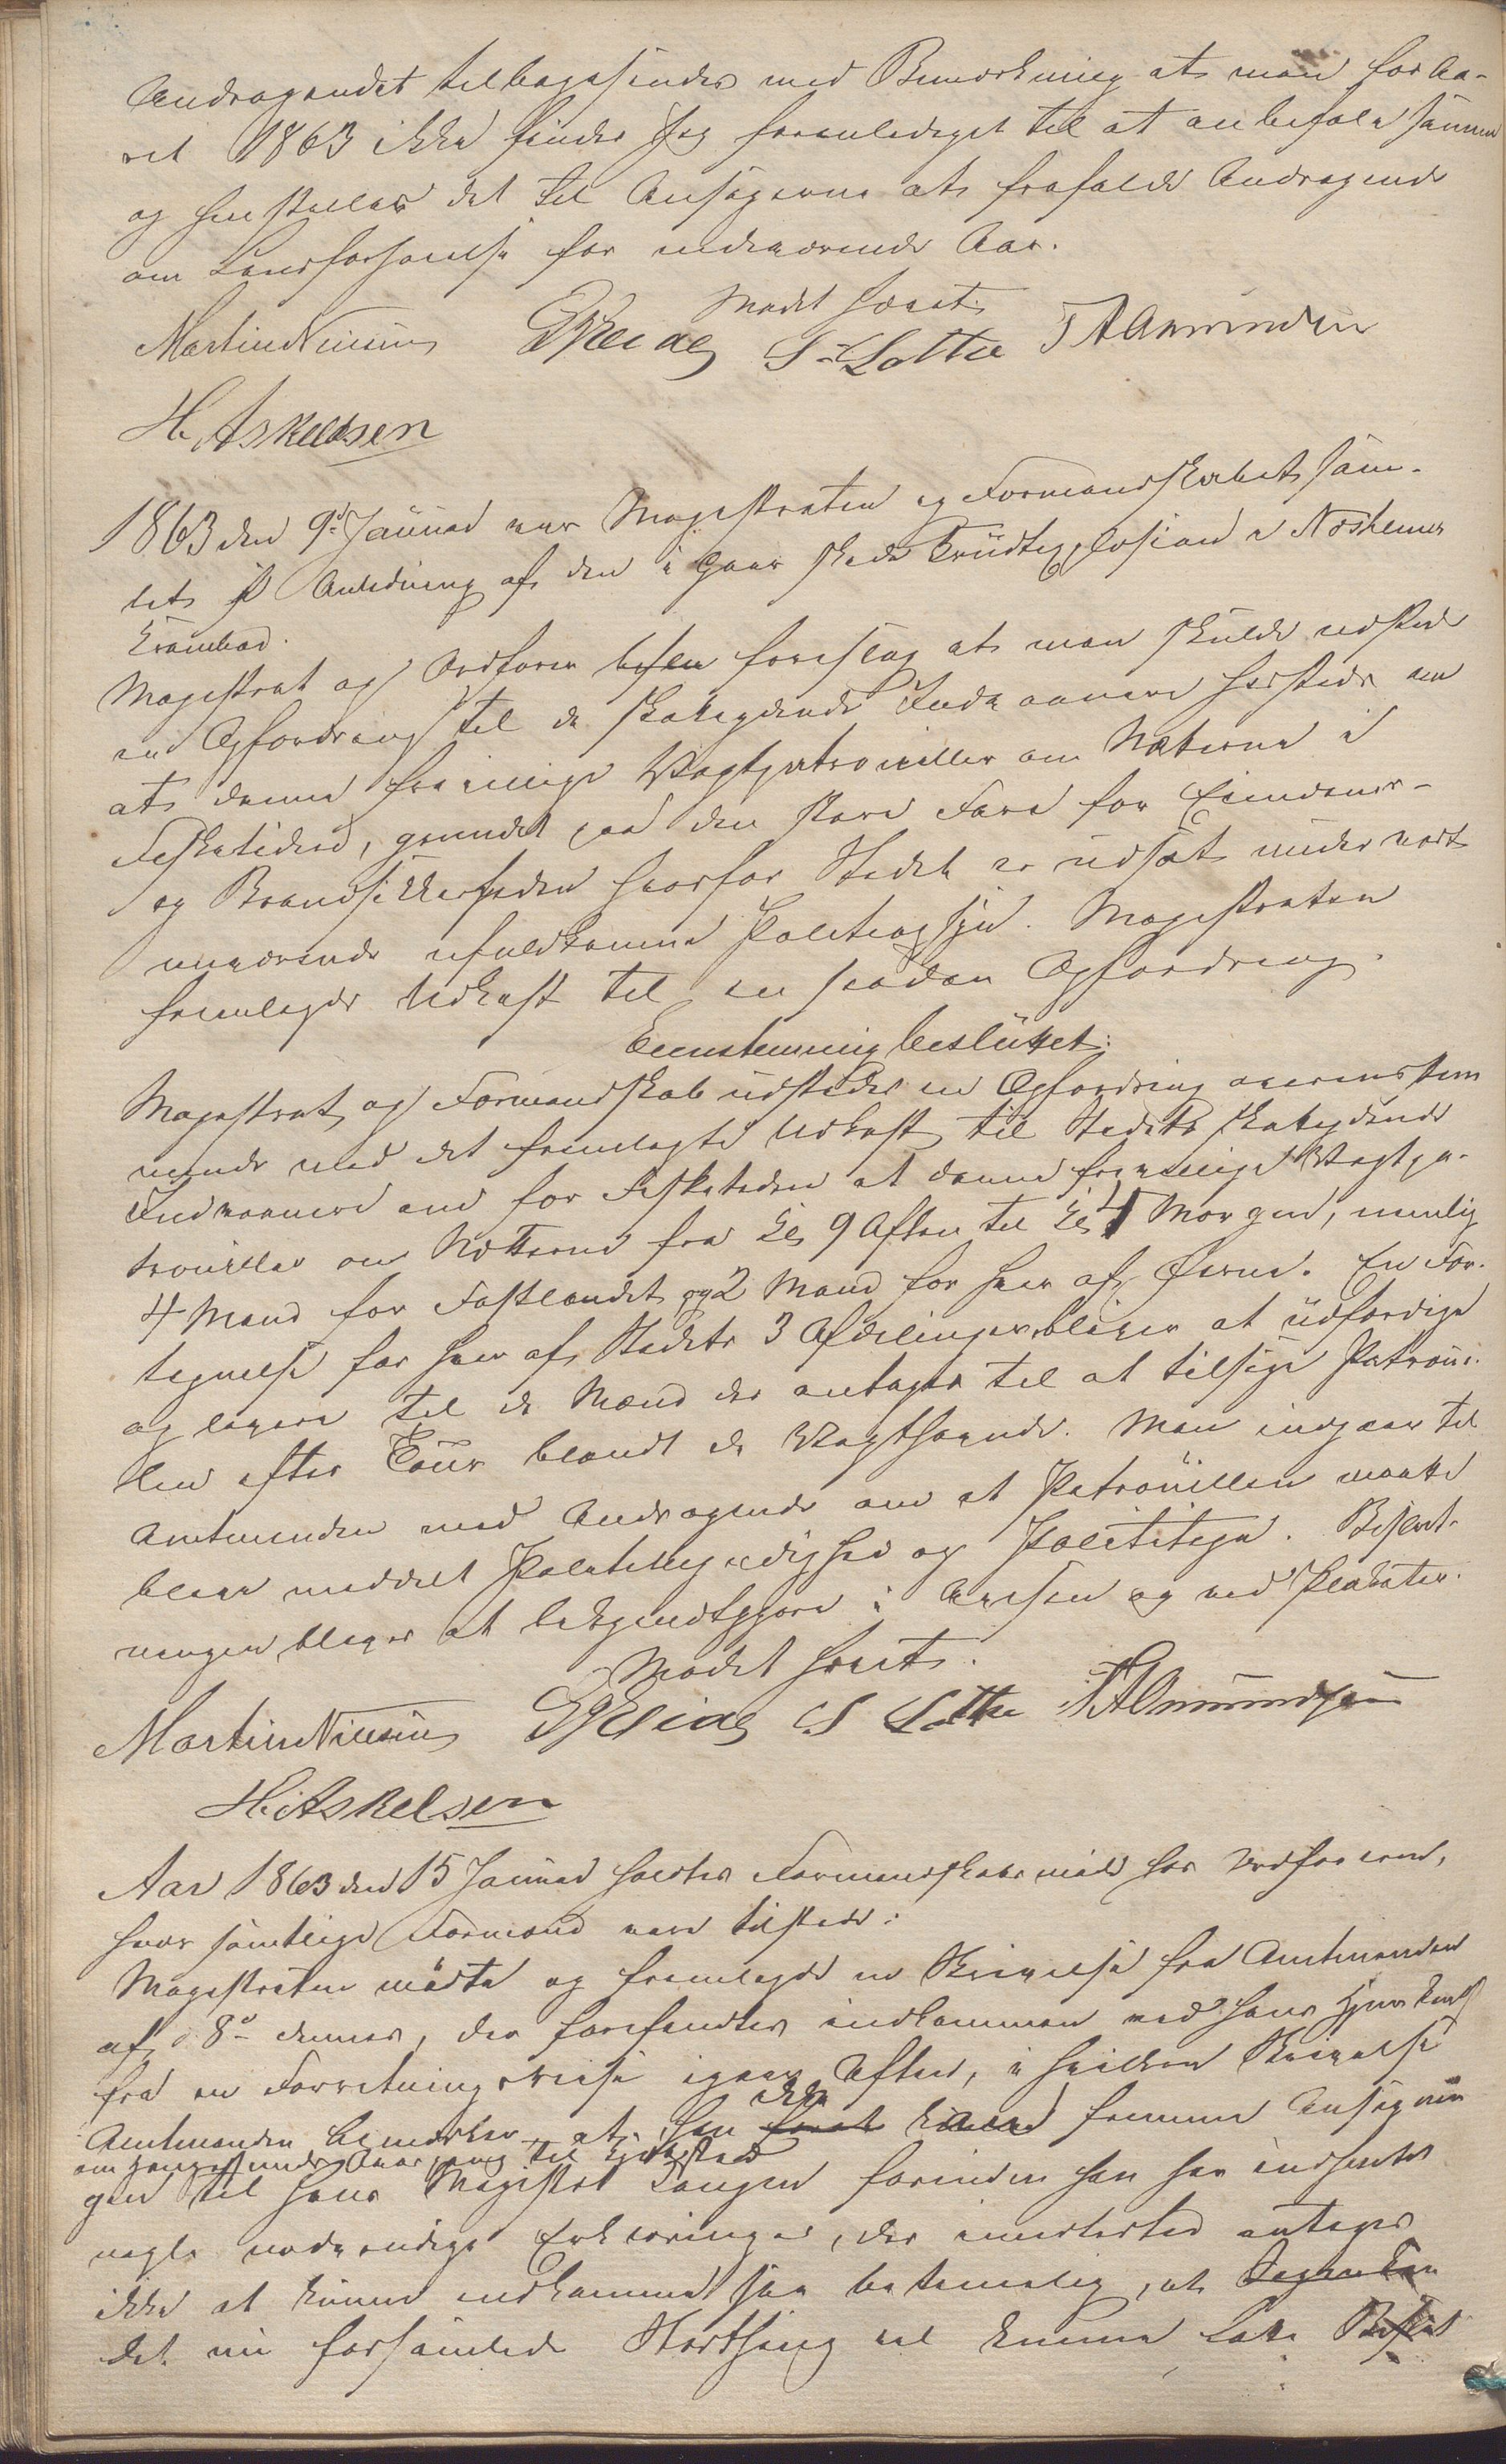 Andragendet tilbagesendes med Bemærkning at man for Aa-
ret 1863 ikke finder sig foranlediget til at anbefale samme
og henstilles det til Ansøgerne at frafalde Andragende
om Lønsforhøielse for indeværende Aar.
Mødet hævet.
Martin Nissen S Lotte T A Amundsen
H. Askeldsen
1863 den 9de Januar var Magistraten og Formandskabet sam-
let i Anledning af den i Gaar skede Krudtexplosion i
Krambod.
Magistrat og Ordfører foreslog at man skulde udstede
en Opfordring til de skatteydende Indvaanere herstede om
at danne frivillige Vagtpatrouiller om Nætterne i
Fisketiden, grundet paa den store Fare for Eiendoms-
og Brandsikkerheden hvorfor Stedet er udsat under vort
nuværende ufuldkomne Politiopsyn. Magistraten
fremlagde Udkast til en saadan Opfordring.
Eenstemmig besluttet:
Magistrat og Formandskab udsteder en Opfordring overensstem
mende med det fremlagte Udkast til Stedets skatteydende
Indvaanere om for Fisketiden at danne frivillige Vagtpa-
trouiller om Nætterne fra Kl 9 Aften til Kl 4 Morgen, nemlig
4 Mand for Fastlandet og 2 Mand for hver af Øerne. En For-
tegnelse for hver af Stedets 3 Afdelinger bliver at udfærdige
og levere til de Mænd der antages til at tilsige Patroui-
llen efter Tour blandt de Vagthavende. Man indgaar til
Amtmanden med Andragende om at Patrouillen maatte
blive meddelt Politimyndighed og Polititegn. Beslut-
ningen bliver at bekjendtgjøre i Avisen og ved Plakater.
Mødet hævet.
Martin Nissen S Lotte T A Amundsen
H. Askelsen
Aar 1863 den 15 Januar holdtes Formandskabsmøde hos Ordføreren,
hvor samtlige Formænd vare tilstede:
Magistraten mødte og fremlagde en Skrivelse fra Amtmanden
af 8de dennes, der forefandtes indkommen ved hans Hjemkomst
fra en Forretningsreise igaar Aften, i hvilken Skrivelse
Amtmanden bemærker, at han ikke kan fremme Ansøgnin
om til Kjøbsted
gen til Hans Majestæt Kongen forinden han har indhentet
nogle nødvendige Erklæringer, der imidlertid antages
ikke at kunne indkomme saa betimelig, at
det nu forsamlede Storthing vil kunne